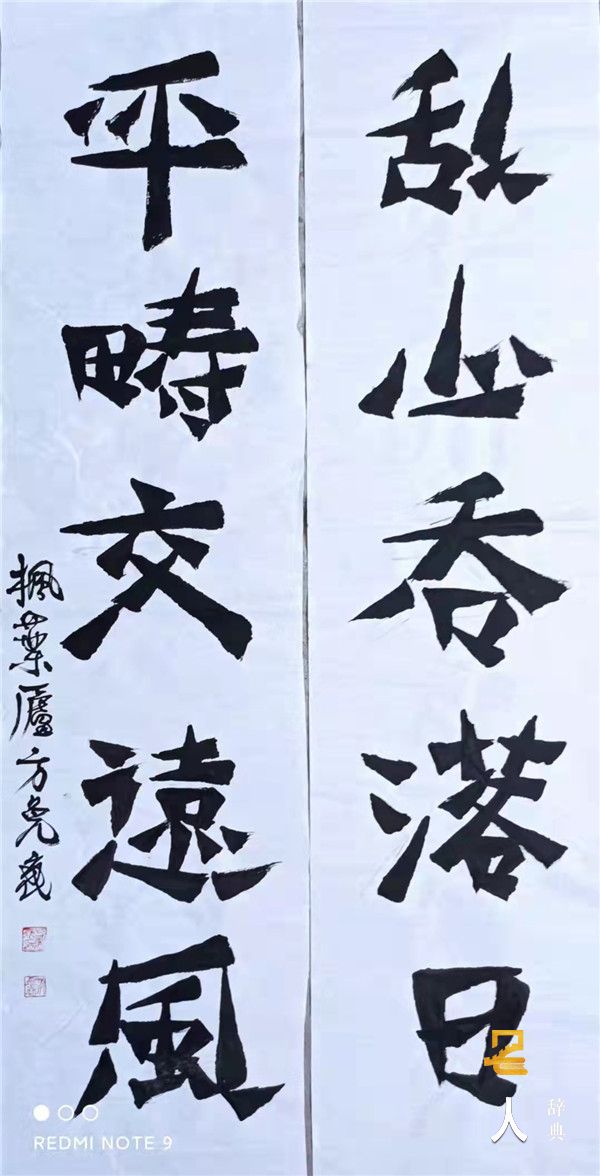 乱山吞落日
平畴交遠風
楓葉廬方堯巍
REDMI NOTE 9
名人
辞典